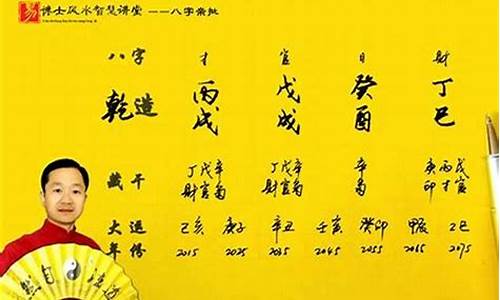 易 博士风水智慧讲堂 ——八字案批
八字 才 官 日 財
乾造 丙 戊 癸 丁
戌 戌 酉 巳
藏干 丁戊辛 丁戊辛 辛 庚丙戊
財官 財官 印才官
大运 己亥 庚子 辛丑 壬寅 癸卯 甲辰 乙巳
年份 2015 2025 2035 2045 2055 2065 2075
然自法道